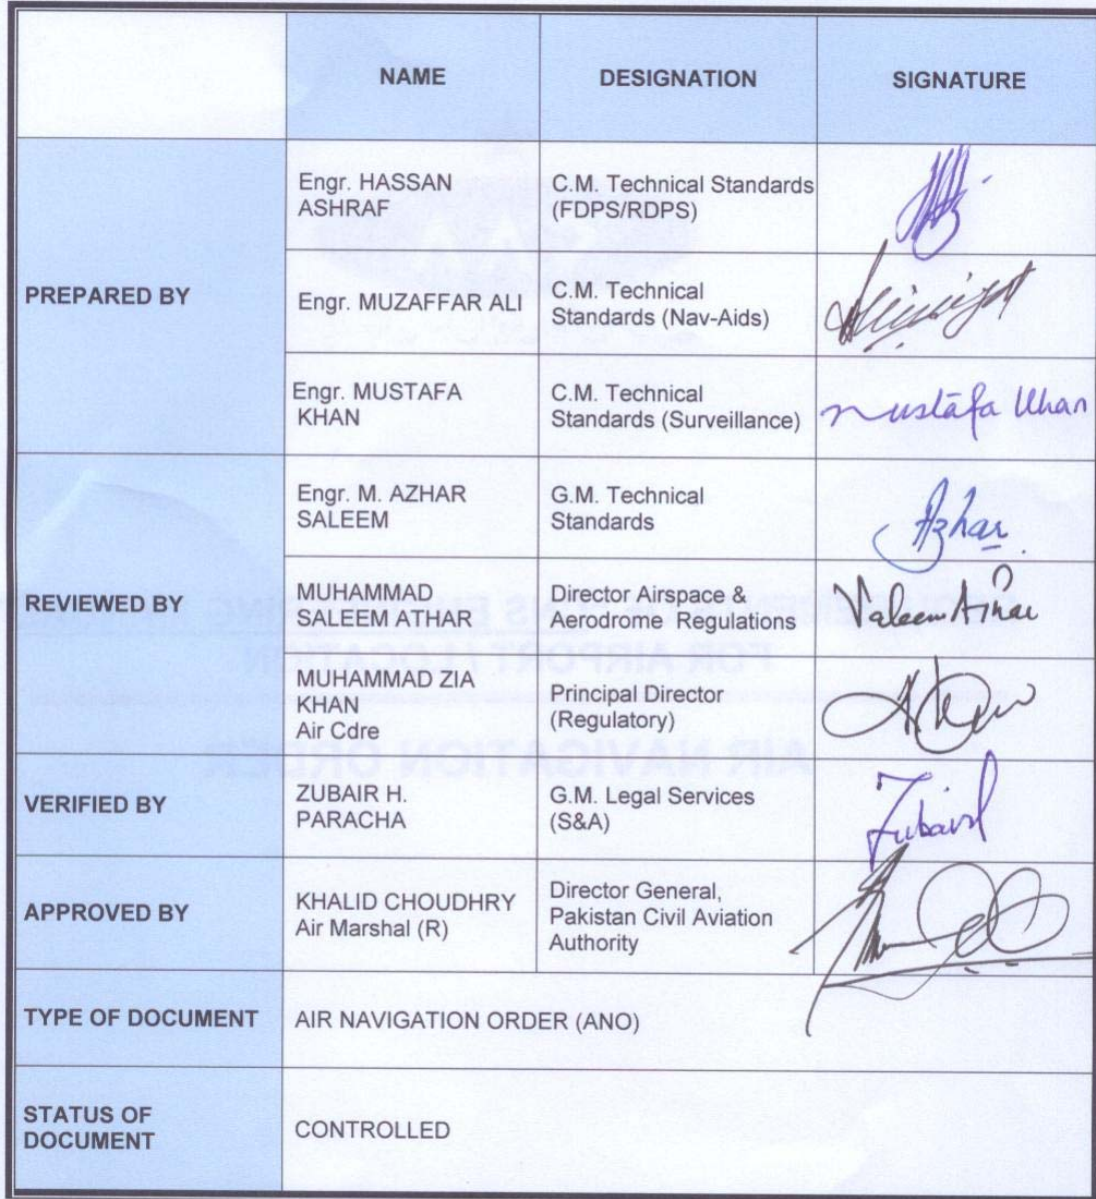 NAME DESIGNATION SIGNATURE
PREPARED BY
Engr. HASSAN
ASHRAF
C.M. Technical Standards
(FDPS/RDPS)
Engr. MUZAFFAR ALI
C.M. Technical
Standards (Nav-Aids)
Engr. MUSTAFA
KHAN
C.M. Technical
Standards (Surveillance)
Mustafa Khan
REVIEWED BY
Engr. M. AZHAR
SALEEM
G.M. Technical
Standards
Azhar
MUHAMMAD
SALEEM ATHAR
Director Airspace &
Aerodrome Regulations
MUHAMMAD ZIA
KHAN
Air Cdre
Principal Director
(Regulatory)
VERIFIED BY
ZUBAIR H.
PARACHA
G.M. Legal Services
(S&A)
APPROVED BY
KHALID CHOUDHRY
Air Marshal (R)
Director General,
Pakistan Civil Aviation
Authority
TYPE OF DOCUMENT
AIR NAVIGATION ORDER (ANO)
STATUS OF
DOCUMENT
CONTROLLED
FOR AIRPORT / LOCATION
AIR NAVIGATION ORDER